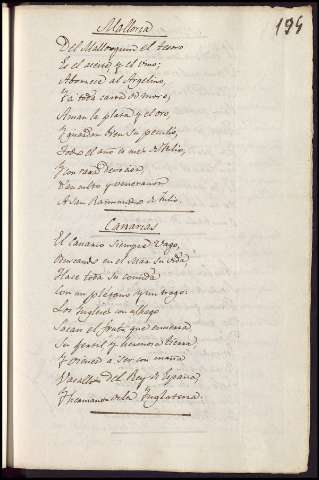 Mallorca
194
Del Mallorquin el tesoro
Es el aceite, y el vino;
Aborrece al Argelino,
Y a toda carne de moro;
Aman la plata y el oro,
Y guardan bien su peculio,
Todo el año es mes de Julio,
Y con rara devocion,
Dan culto y veneracion
A San Raimundo de Tulio.
Canarias
El Canario siempre vago,
Buscando en el Mar su vida,
Hace toda su comida
Con un plátano y un trago:
Los Ingleses con alhago
Sacan el fruto que encierra
Su fertil y hermosa tierra
Y vienen a ser con maña
Vasallos del Rey de España,
Y hermanos de la Inglaterra.